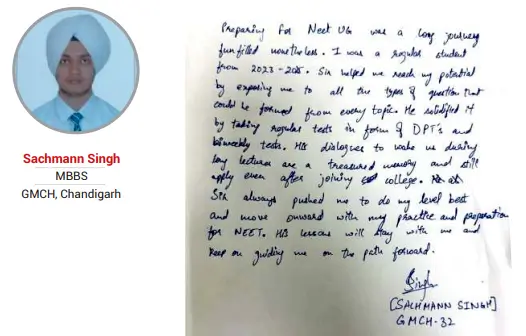 Sachmann Singh
MBBS
GMCH, Chandigarh
Preparing for Neet UG was a long journey
fun filled nonetheless. I was a regular student
from 2023-2025. Sir helped me reach my potential
by exposing me to all the types of question that
could be formed from every topic. He solidified it
by taking regular tests in form of DPT's and
biweekly tests. His dialogues to wake us during
long lectures are a treasured memory and still
apply even after joining college.
Sir always pushed me to do my level best
and move onward with my practice and preparation
for NEET. His lessons will stay with me and
keep on guiding me on the path forward.
Singh
[SACHMANN SINGH]
GMCH-32